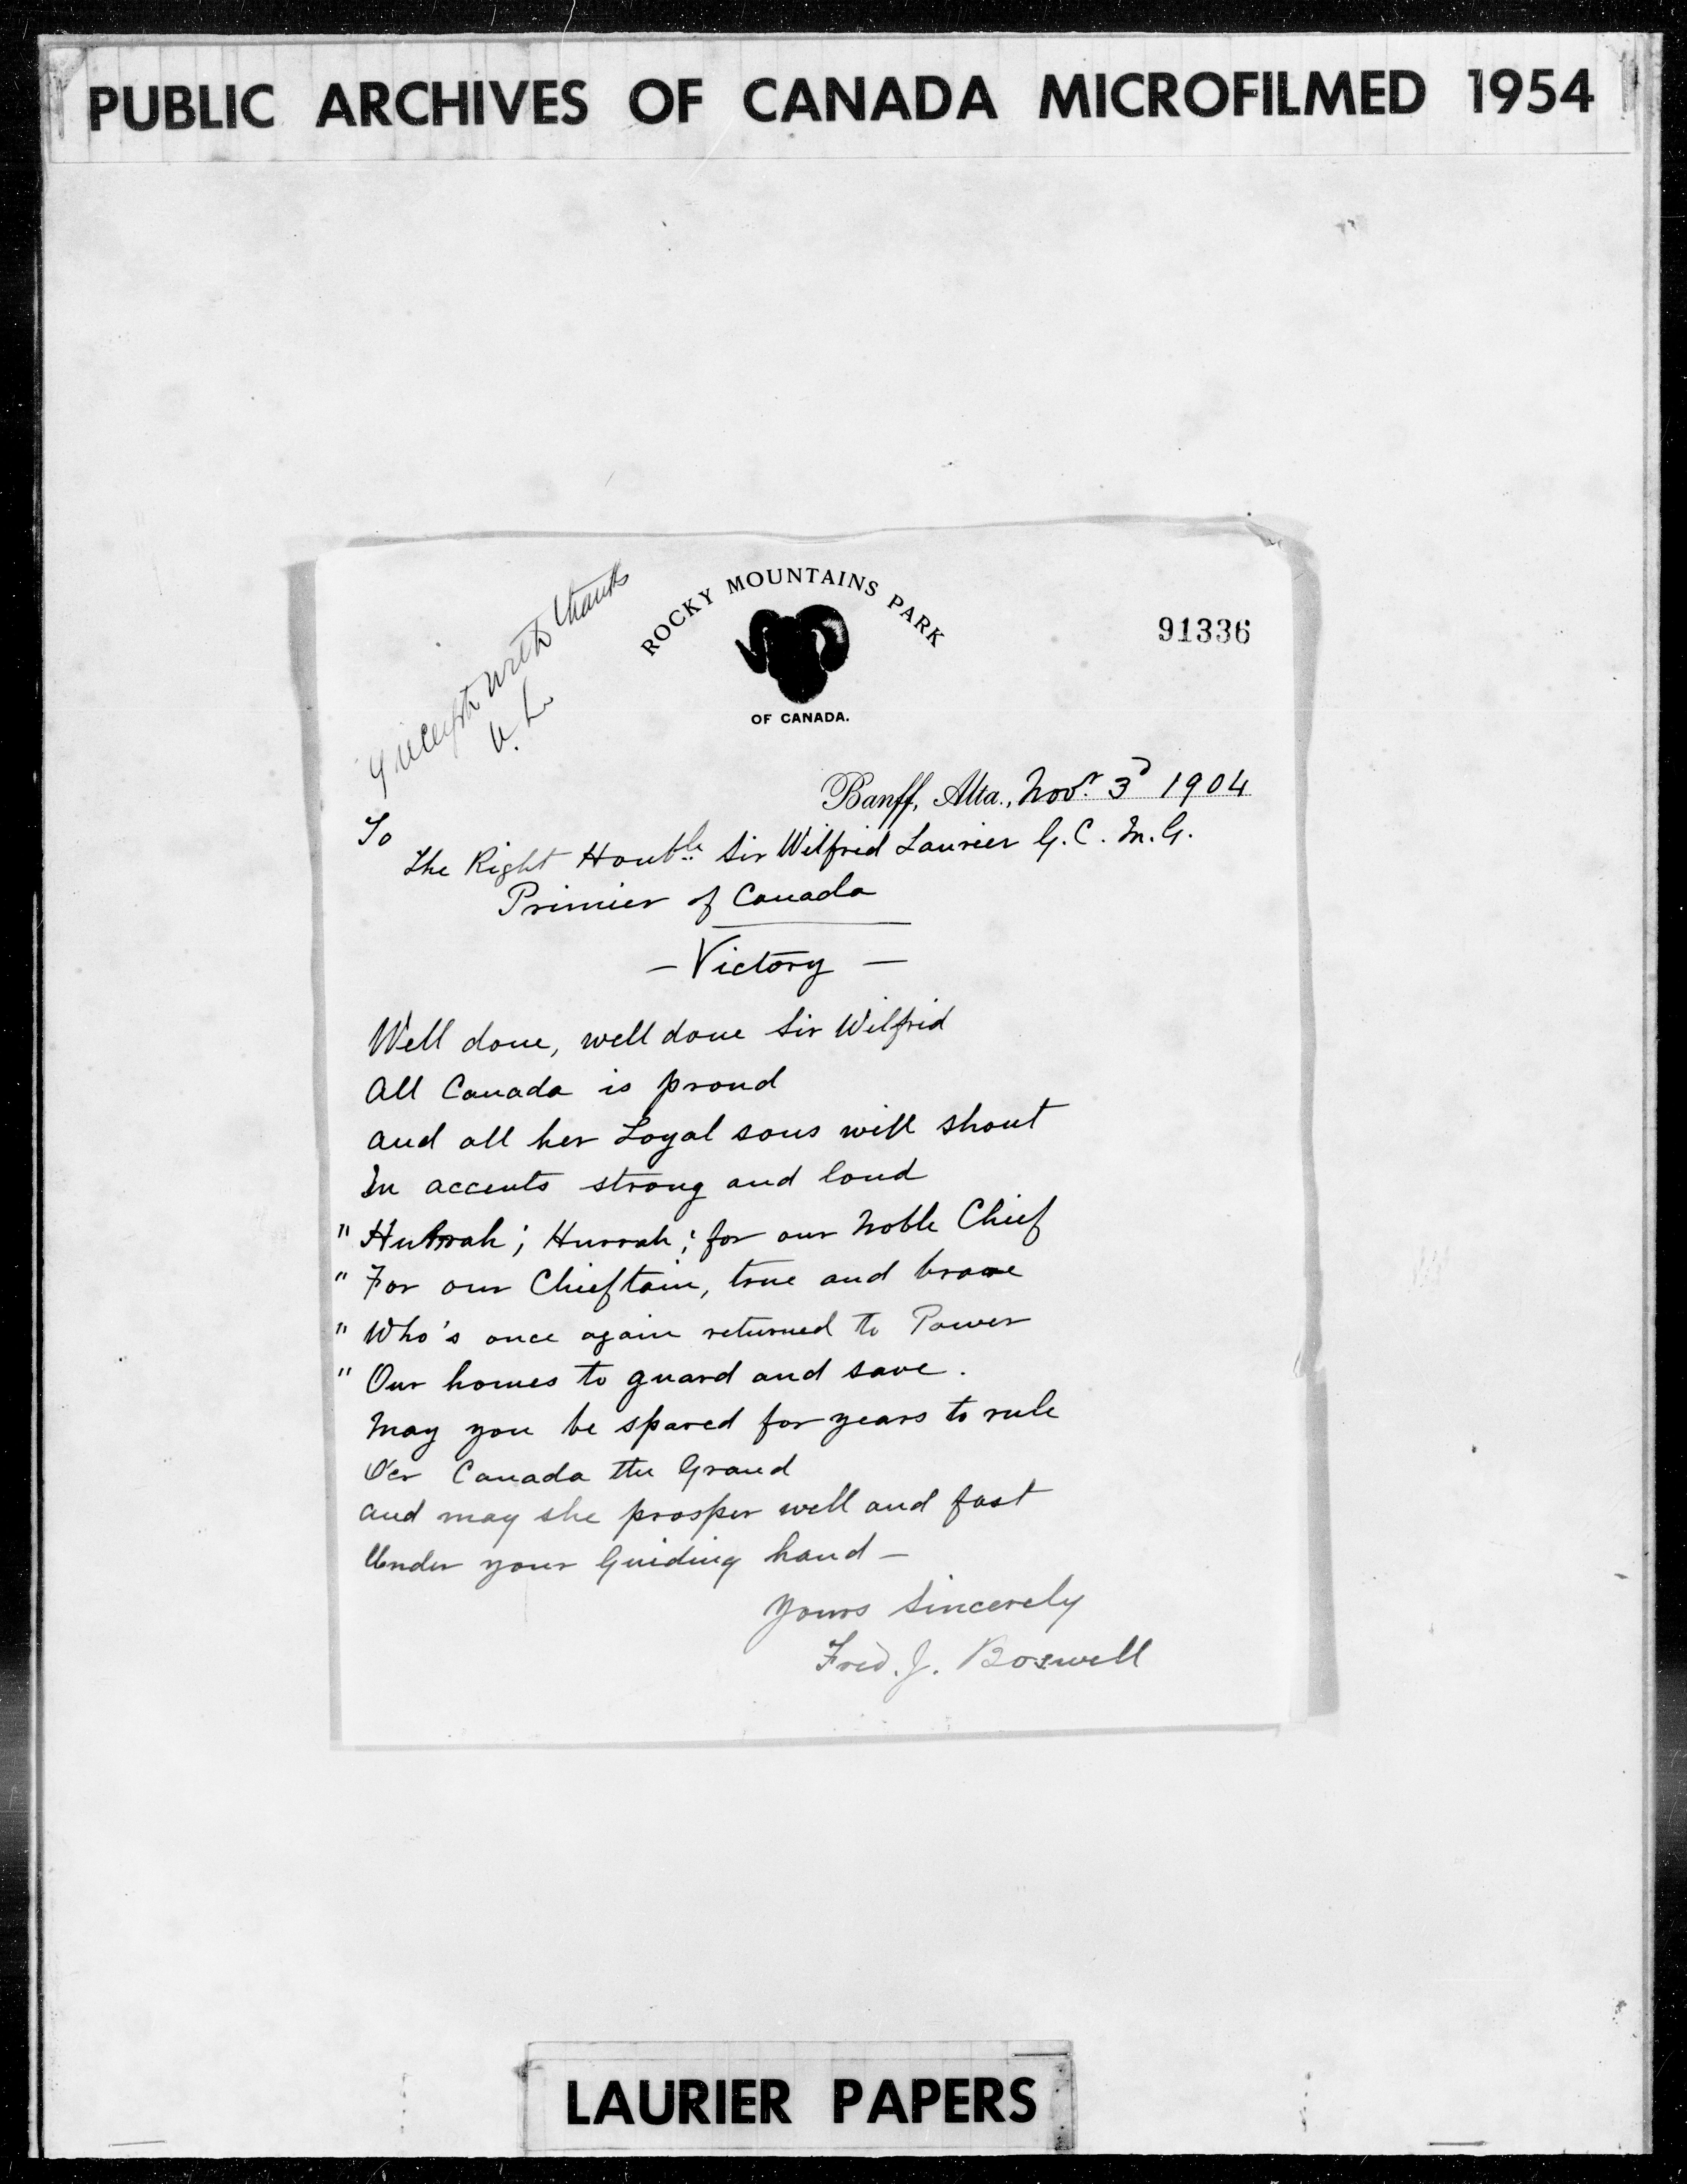 PUBLIC ARCHIVES OF CANADA MICROFILMED 1954
with thanks
W. L.
ROCKY MOUNTAINS PARK
OF CANADA.
91336
Banff, Alta., Novr. 3d 1904
To
The Right Houble Sir Wilfrid Laurier G. C. M. G.
Primier of Canada
— Victory —
Well done, well done Sir Wilfrid
All Canada is proud
and all her Loyal sons will shout
In accents strong and loud
" Hurrah; Hurrah; for our Noble Chief
" For our Chieftain, true and brave
" Who's once again returned to Power
" Our homes to guard and save.
May you be spared for years to rule
O'er Canada the Grand
and may she prosper well and fast
Under your Guiding hand —
Yours Sincerely
Fred. J. Boswell
LAURIER PAPERS